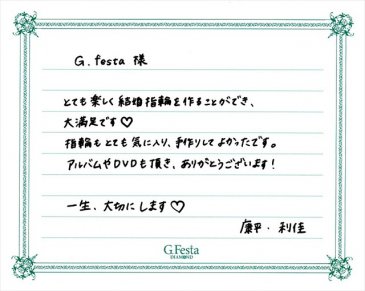 G.festa 様
とても楽しく結婚指輪を作ることができ、
大満足です♡
指輪もとても気に入り、手作りしてよかったです。
アルバムやDVDも頂き、ありがとうございます！
一生、大切にします♡
康平・利佳
G.Festa
DIAMOND